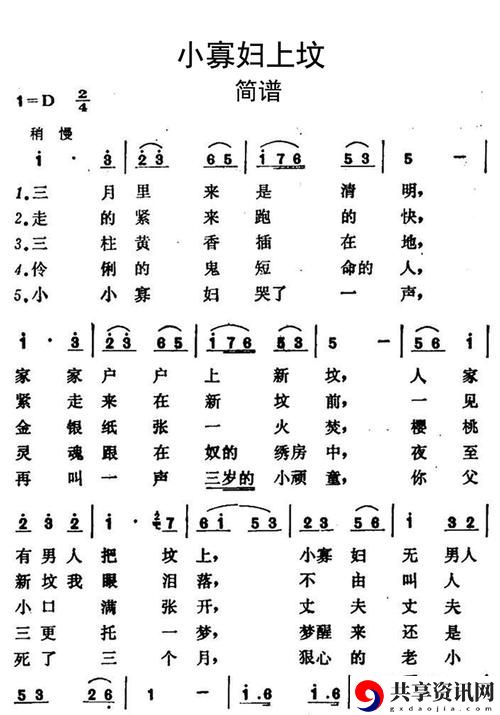 小寡妇上坟
简谱
1=D 2/4
稍慢
i · 3 | 2 3 6 5 | i 7 6 5 3 | 5 - |
1.三月里来是清明,
2.走的紧来跑的快,
3.三柱黄香插在地,
4.伶俐的鬼短命的人,
5.小小寡妇哭了一声,
i · 3 | 2 3 6 5 | i 7 6 5 3 | 5 - | 6 5 i |
家家户户上新坟,人家
紧走来在新坟前,一见
金银纸张一火焚,樱桃
灵魂跟在奴的绣房中,夜至
再叫一声三岁的小顽童,你父
2 3 2 3 | i · 2 7 | 6 i 5 3 | 2 3 5 6 | i 3 2 |
有男人把坟上,小寡妇无男人
新坟我眼泪落,不由叫人
小口满张开,丈夫丈夫
三更托一梦,梦醒来还是
死了三个月,狠心的老小
5 3 2 6 · | 1 - | i · 6 i · 6 | 5 3
共享资讯网
gxdaojia.com